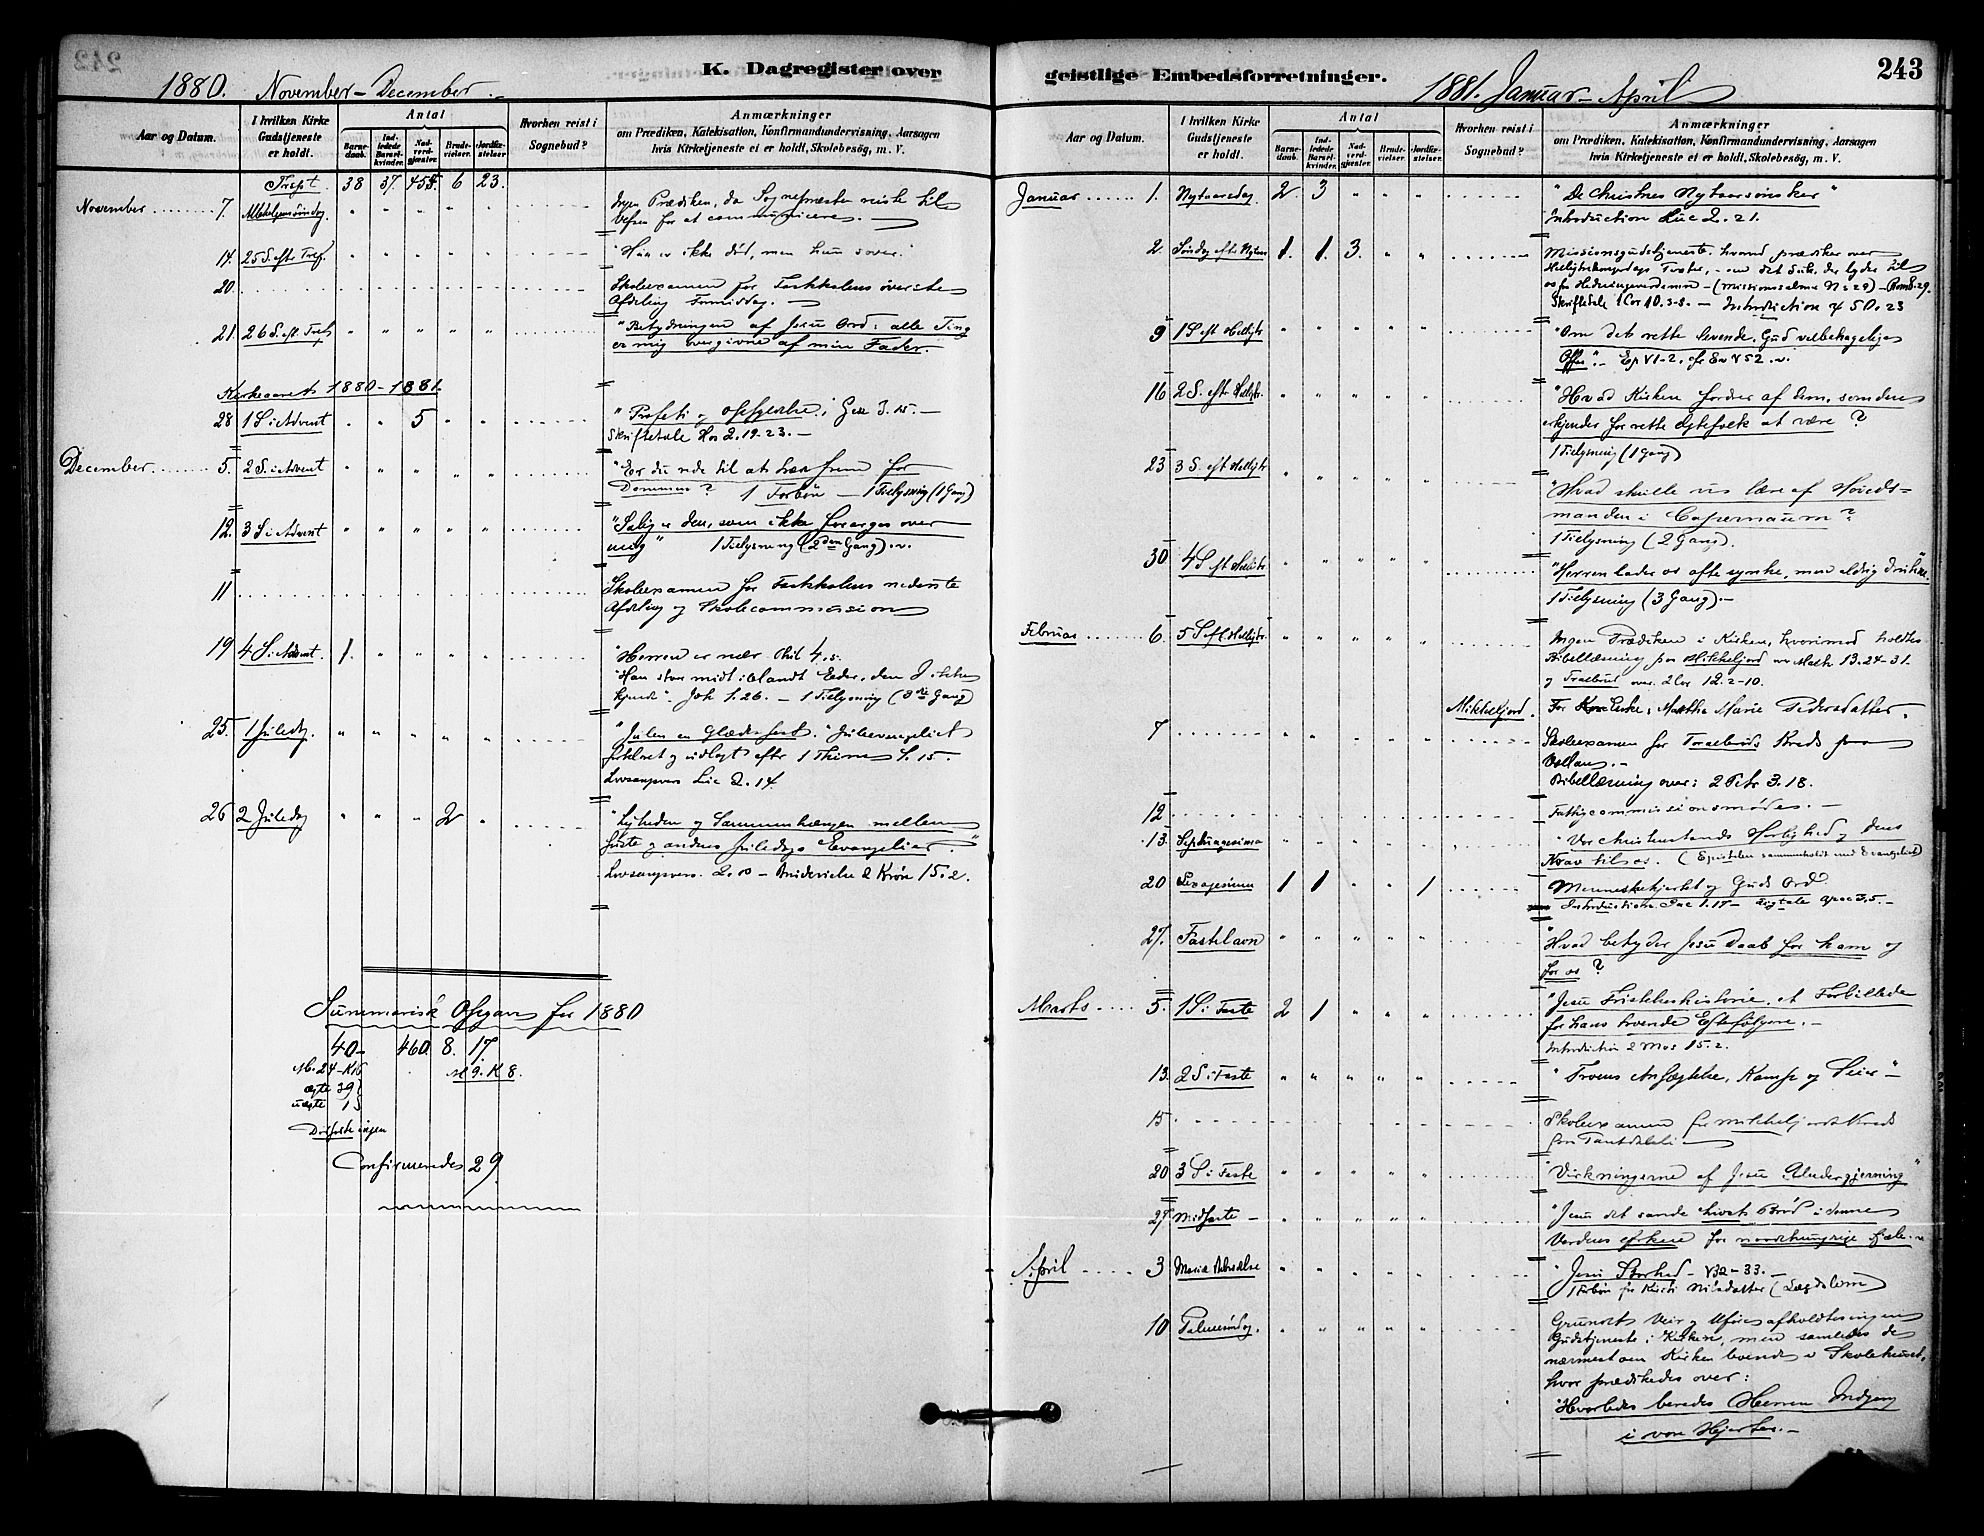 K. Dagregister over
1880. November - December.
Aar og Datum.
I hvilken Kirke Gudstjeneste er holdt.
Antal
Barnedaab.
Indledede Barselkvinder.
Nadverdgjæster.
Brudevielser.
Jordfæstelser.
Hvorhen reist i Sognebud?
Anmærkninger
om Prædiken, Katekisation, Konfirmandundervisning, Aarsagen
hvis Kirketjeneste ei er holdt, Skolebesøg, m. V.
38 37. 455. 6 23.
November 7. Allehelgensøndag " " " " "
Ingen Prædiken, da Sognepræsten reiste til
Vefsn for at communicere. -
14. 25 S. efter Tref. " " " " " "Hun er ikke død, men hun sover."
20. Skoleexamen for Fastskolens øverste
Afdeling Formiddag. -
21. 26 S. eft. Tref " " " " " "Betydningen af Jesu Ord: alle Ting
er mig overgivne af min Fader.
Kirkeaaret 1880 - 1881.
28 1 S. i Advent " " 5 " " "Profeti og Opfyldelse i Gen 3.15. -
Skriftetale Hos 2.19.23. -
December 5. 2 S. i Advent " " " " " "Er du rede til at træde frem for
Dommen? 1 Forbøn - 1 Tillysning (1 Gang)
12. 3 S. i Advent " " " " " "Salig er den, som ikke forarges over
mig" 1 Tillysning (2den Gang).
11 Skoleexamen for Fastskolens nederste
Afdeling og Skolecommission
19 4 S. i Advent. 1. " " " " "Herren er nær Phil 4.5.
"Han staar midt iblandt Eder, den I ikke
kjende". Joh 1.26. - 1 Tillysning (3die Gang)
25. 1 Juledag. " " " " " "Julen en Glædesfest." Juleevangeliet
forklaret og udlagt efter 1 Thim 1.15.
Lovsangsvers Luc 2.14
26 2 Juledag " " " 2 " "Ligheden og Sammenhængen mellem
første og anden Juledags Evangelier."
Lovsangsvers. - Brudevielse 2 Krøn 15.2.
Summarisk Opgave for 1880
40 - 460. 8. 17.
M. 24 - K 16
M 9. K 8.
ægte 39
uægte 1
Dødfødte ingen
Confirmerede 29

geistlige Embedsforretninger.
243
1881. Januar - April
Aar og Datum.
I hvilken Kirke Gudstjeneste er holdt.
Antal
Barnedaab.
Indledede Barselkvinder.
Nadverdgjæster.
Brudevielser.
Jordfæstelser.
Hvorhen reist i Sognebud?
Anmærkninger
om Prædiken, Katekisation, Konfirmandundervisning, Aarsagen
hvis Kirketjeneste ei er holdt, Skolebesøg, m. V.
Januar 1. Nytaarsdag 2. 3 " " " "De Christnes Nytaarsønsker"
Introduction Luc 2.21.
2. Søndag efter Nytaar 1. 1. 3. " " Missionsgudstjeneste, hvorved prædikes over
Helligtrekongerdags Texter, - om det Suk, der lyder til
os fra Hedningeverdenen - (Missionssalme N: 29) -
Skriftetale 1 Cor 10.3-8. - Introduction 50.23
9 1 S eft Helligtr " " " " " "Om det rette levende, Gud velbehagelige
Offer".
16 2 S. eft Helligtr. " " " " " "Hvad Kirken fordrer af dem, som den
erkjender for rette Ægtefolk at være?
1 Tillysning (1 Gang)
23 3 S. eft Helligtr " " " " " "Hvad skulle vi lære af Høveds-
manden i Capernaum?
1 Tillysning (2 Gang).
30 4 S eft Helligtr " " " " " "Herren lader os ofte synke, men aldrig drukne.
1 Tillysning (3 Gang). -
Februar 6. 5 S eft. Helligtr. " " " " " Ingen Prædiken i Kirken, hvorimod holdtes
Bibellæsning paa Mikkeljord over Math 13.24-31.
og over 2 Cor 12.2-10.
Mikkeljord. For Enke, Martha Marie Pedersdatter.
7 Skoleexamen for Kreds paa
Bibellæsning over: 2 Petr 3.18.
12 Fattigcommissionsmøde. -
13. Septuagesima "Vor Christenstands Herlighed og dens
Krav til os. (Epistelen sammenholdt med Evangeliet)
20 Sexagesima 1 1 " " 1 Menneskehjertet og Guds Ord.
Introduction Jac 1.17 - Ligtale Apoc 3.5. -
27. Fastelavn " " " " " "Hvad betyder Jesu Daab for ham og
for os?
Marts 5. 1 S. i Faste 2 1 " " " "Jesu Fristelseshistorie, et Forbillede
for hans troende Efterfølgere. -
Introduction 2 Mos 15.2.
13. 2 S. i Faste " " " " " "Troens Anfægtelse, Kamp og Seier" -
15. Skoleexamen for Mikkeljords Kreds
20 3 S i Faste " " " " " "Virkningerne af Jesu Undergjerning"
27. Midfaste - " " " " " "Jesus det sande Livets Brød i denne
Verdens Ørken for Sjæle.
April 3 Maria Bebudelse " " " " " "Jesu Storhed - V32-33. -
1 Forbøn for Kirsti Nilsdatter
10 Palmesøndag. " " " " " Grundet Veir og Uføre afholdtes ingen
Gudstjeneste i Kirken, men samledes de
nærmest om Kirken boende i Skolehuset,
hvor prædikedes over:
"Hvorledes beredes Herren Indgang
i vore Hjerter. -